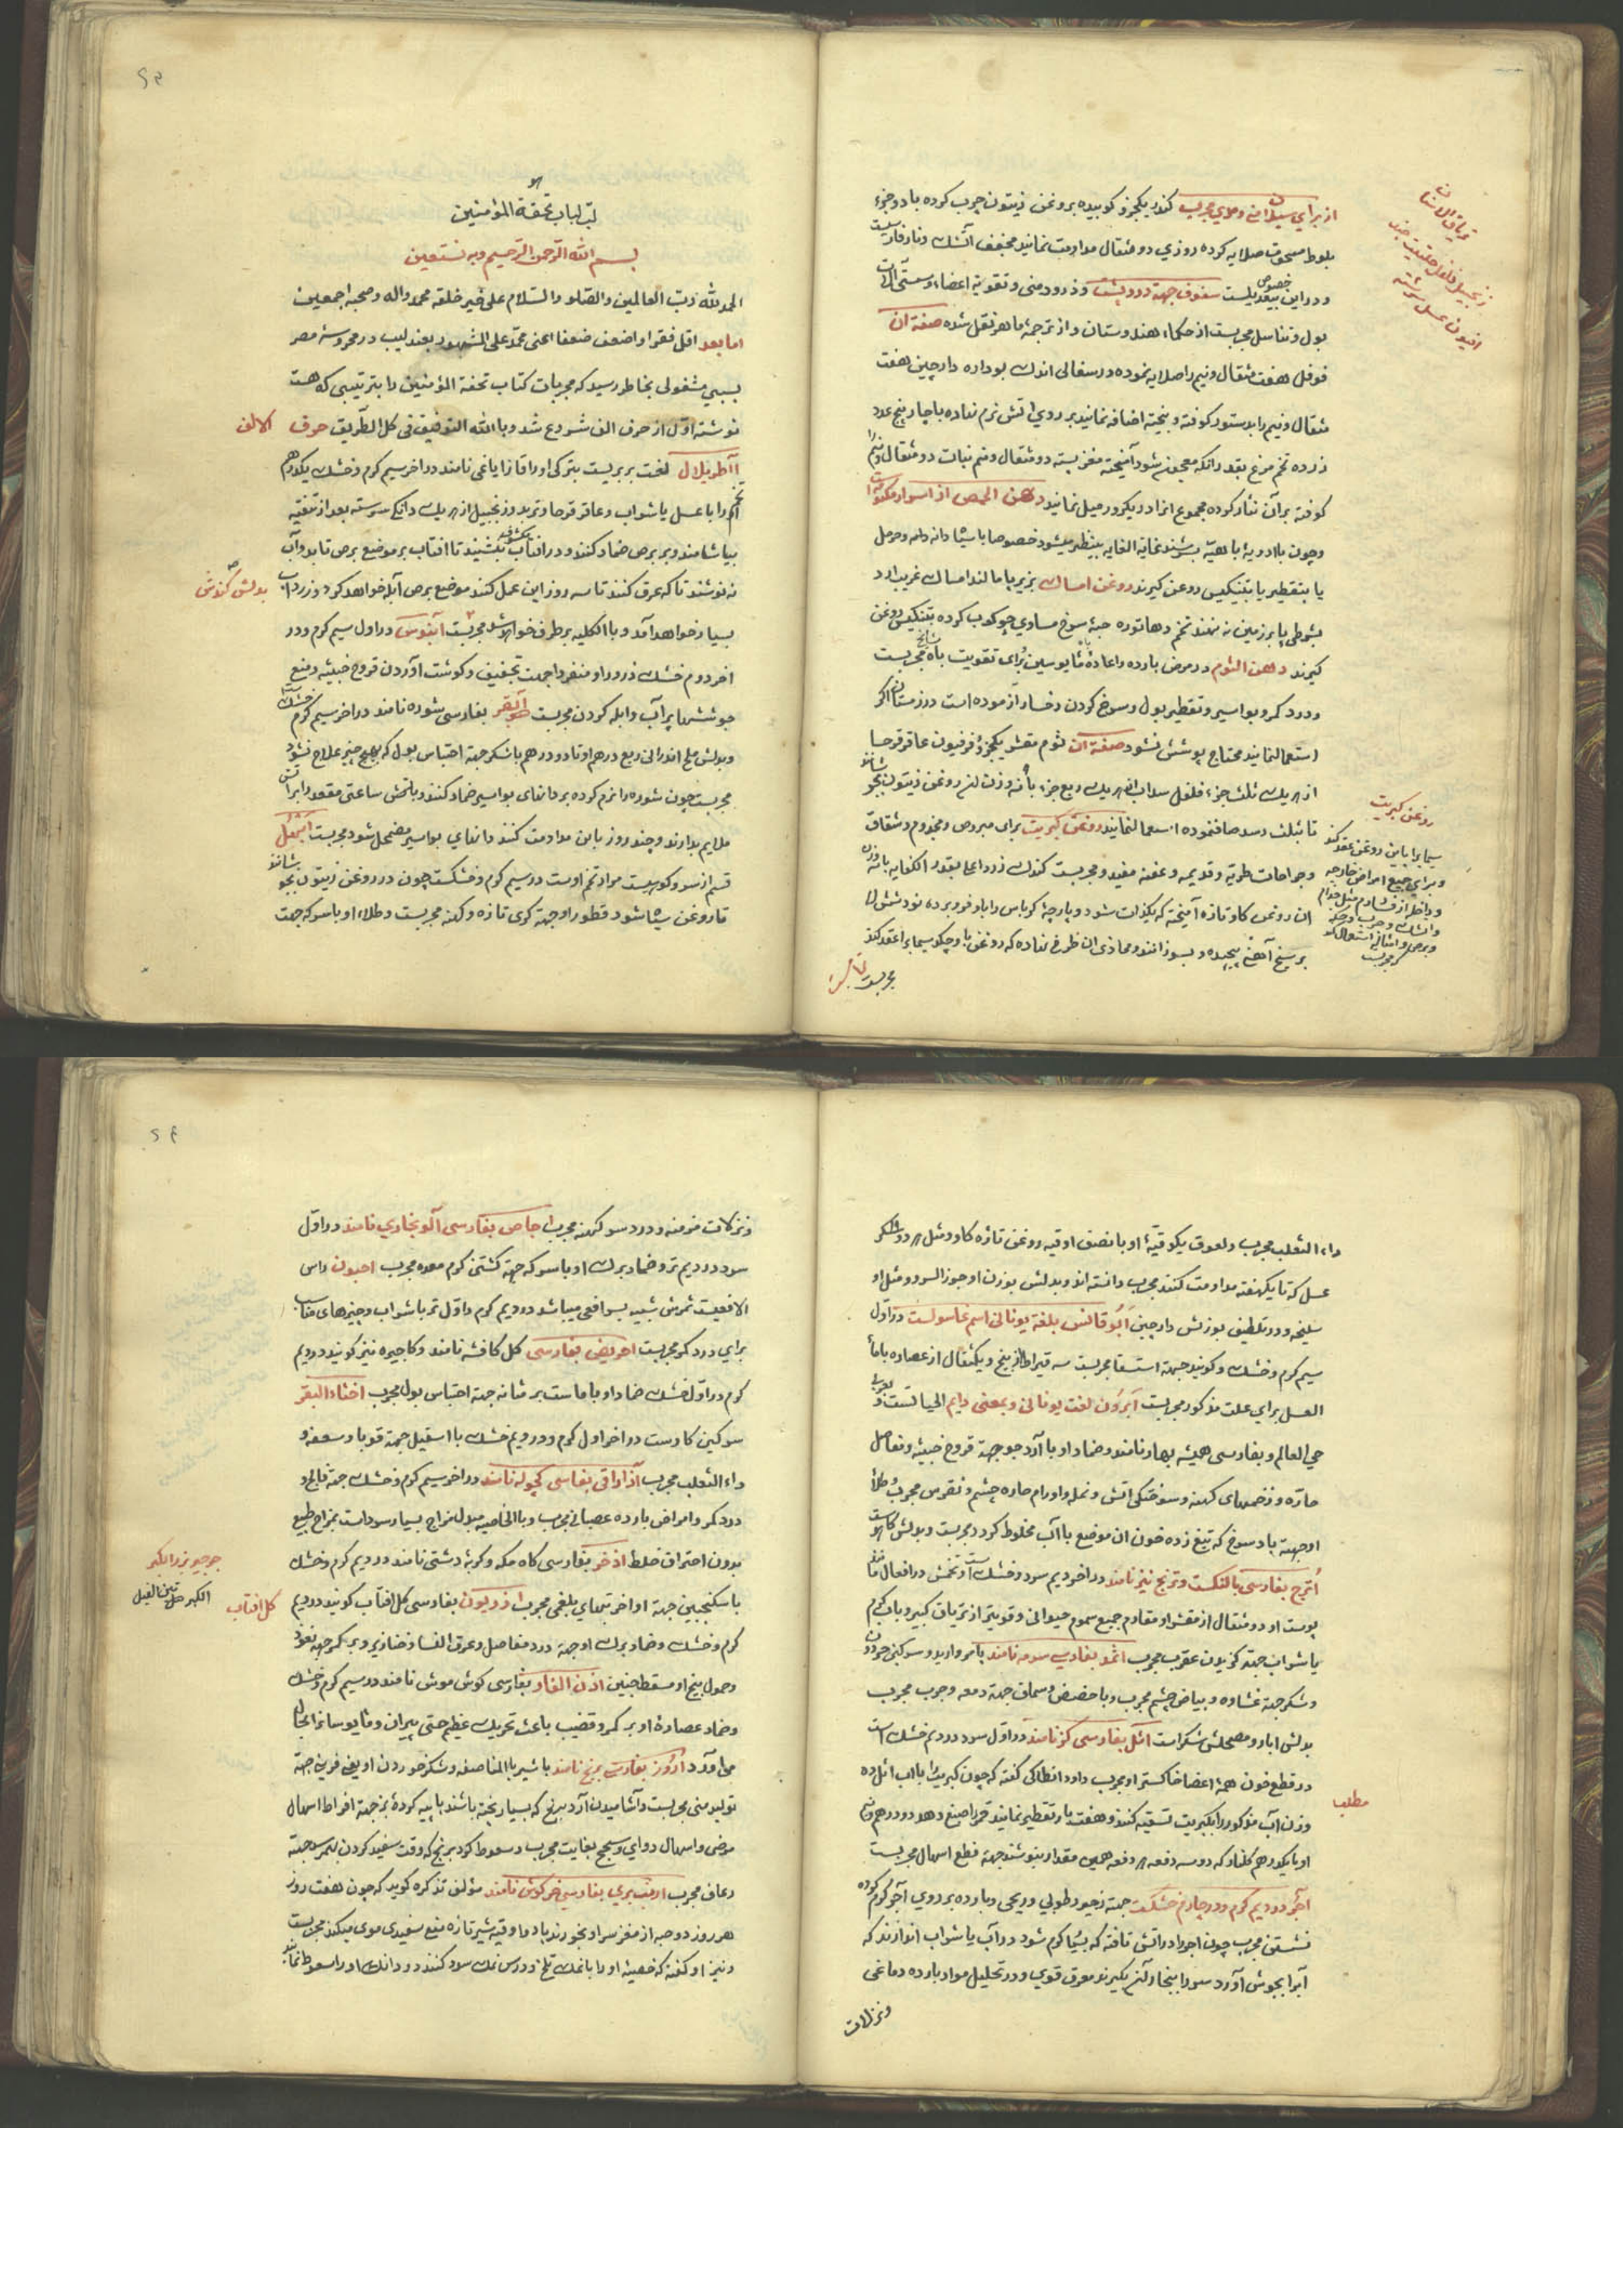 از برای سیلان منی و مذی مجرب کندر یکجزو کوبیده بروغن زیتون چرب کرده با دو جزء
بلوط مسحوق صلایه کرده روزی دو مثقال مداومت نمایند مجفف آتشک و نار فارسیست
و در این خصوص بیعدیلست سفوف جهة درد پشت و زرود منی و تقویة اعضاء و سستی آلات
بول و تناسل مجربست از حکماء هندوستان و از ترجمهٔ ماهر نقل شده صفة آن
فوفل هفت مثقال و نیم را صلایه نموده در سفالی اندک بو داده دارچین هفت
مثقال و نیم را بدستور کوفته و بیخته اضافه نمایند بر روی آتش نرم نهاده با چهار پنج عدد
زرده تخم مرغ بقدر آنکه معجون شود آمیخته مغز پسته دو مثقال و نیم نبات دو مثقال و نیم را
کوفته بر آن نثار کرده مجموع انرا در یکروز میل نمایند دهن الحمص از اسرار مکتومه است
و چون با ادویهٔ باهیّه بسرشند بغایة الغایه بینظیر میشود خصوصا با
یا بتقطیر یا بتنکیس روغن گیرند روغن امساک بزیر پا مالند امساک غریب آرد
بشرطی پا بر زمین نه نهند تخم دهاتوره حبهٔ سرخ مساوی جو کوب کرده بتنکیس روغن
گیرند دهن الثوم در مرض بارده و اعادهٔ مأیوسین برای تقویت باه مجربست
و درد کمر و بواسیر و تقطیر بول و سرخ کردن رخسار آزموده است در زمستان اگر
استعمال نمایند محتاج پوشش نشود صفة آن ثوم مقشر یکجزو فرفیون عاقرقرحا
از هریک ثلث جزء فلفل سداب از هریک ربع جزء با نه وزن آن روغن زیتون بجوشانند
تا بثلث رسد صاف نموده استعمال نمایند روغن کبریت برای مبروص و مجذوم و شقاق
و جراحات طریّه و قدیمه و عفنه مفید و مجربست کندک زرد اعلا بقدر الکفایه با نه وزن
ان روغن کاو تازه آمیخته که یکذات شود و پارچهٔ کرباس را باو فرو برده نود شش
بر سیخ آهنی پیچیده و بسوزانند و محاذی ان ظرف نهاده که روغن باو چکد سیماب را عقد کند
مجربست
روغن کبریت
سیماب را باین روغن عقد کند
و برای جمیع امراض خارجه
مجربست
لبّ لباب تحفة المؤمنین
بسم الله الرّحمن الرّحیم وبه نستعین
الحمد لله ربّ العالمین والصّلوة والسّلام علی خیر خلقه محمد واله وصحبه اجمعین
اما بعد اقل فقرا و اضعف ضعفا اعنی محمّد علی المشهور بعندلیب در محروسهٔ مصر
بسبب مشغولی بخاطر رسید که مجربات کتاب تحفة المؤمنین را بترتیبی که هست
نوشته اوّل از حرف الف شروع شد وبالله التوفیق فی کل الطّریق حرف الالف
اآطریلال لغت بربریست بترکی اورا قازایاغی نامند در آخر سیم گرم و خشک یکدرهم
تخم آنرا با عسل یا شراب و عاقرقرحا و تربد و زنجبیل از هریک دانگی سرشته بعد از تنقیه
بیاشامند و بر برص ضماد کنند و در آفتاب بنشینند تا آفتاب بر موضع برص تابد و آب
نه نوشند تا که عرق کنند تا سه روز این عمل کنند موضع برص آبله خواهد کرد و زرداب
بسیار خواهد آمد و بالکلیه برطرف خواهد شد مجربست آبنوس در اول سیم گرم و در
آخر دوم خشک ذرور او منفردا جهت تجفیف و گوشت آوردن قروح خبیثه و منع
جوششها پر آب و آبله کردن مجربست ابقر بفارسی شوره نامند در آخر سیم گرم خشک
و بدلش ملح اندرانی ربع درهم او تا دو درهم باشکر جهة احتباس بول که بهیچ چیز علاج نشود
مجربست چون شوره را نرم کرده بر دانهای بواسیر ضماد کنند و بلختی ساعتی مقعد را بر آن
ملایم بدارند و چند روز باین مداومت کنند دانهای بواسیر مضمحل شود مجربست ابهل
قسم از سرو کوهیست مراد تخم اوست در سیم گرم و خشکست چون در روغن زیتون بجوشانند
تا روغن سیاه شود قطور او جهة کری تازه و کهنه مجربست و طلاء او با سرکه جهت
بدلش کندش
داء الثعلب مجرب و لعوق یکوقیهٔ او با نصف اوقیه روغن تازه کاو و مثل هر دو شکر
عسل که تا یکهفته مداومت کنند مجرب دانسته اند و بدلش بوزن او جوز السرو و مثل او
سلیخه و در تلطیف بوزنش دارچین ابوقانس بلغة یونانی اسم غاسولست در اوّل
سیم گرم و خشک و گویند جهة استسقا مجربست سه قیراط از بیخ و یکثقال از عصاره با ماء
العسل برای علت مذکور مجربست ابرون لغت یونانی و بمعنی دایم الحیاتست و بعربی
حی العالم و بفارسی همیشه بهار نامند و ضماد او با آرد جو جهة قروح خبیثه و مفاصل
حارّه و زخمهای کهنه و سوختگی آتش و نمله و اورام حاره چشم و نقرس مجرب و طلاء
او جهة باد سرخ که تیغ زده خون ان موضع با آب مخلوط گردد مجربست و بدلش کاهو است
اترج بفارسی بالنکست و ترنج نیز نامند در آخر دویم سرد و خشک است و تخمش در افعال مانند
پوست او دو مثقال از مقشر او مقاوم جمیع سموم حیوانی و قویتر از تریاق کبیر و باب گرم
یا شراب جهة گزیدن عقرب مجرب اثمد بفارسی سرمه نامند با مروارید و سرکین حردون
و شکر جهة غشاوه و بیاض چشم مجرب و با حضض و سماق جهة دمعه و جرب مجرب
بدلش ابار و مصلحش شکر است اثل بفارسی گز نامند در اوّل سرد در دویم خشک است
در قطع خون همهٔ اعضا خاکستر او مجرب داود انطاکی گفته که چون کبریت را باب اثل ده
وزن آب مذکور را بکبریت تسقیه کنند و هفت بار تقطیر نمایند قمر را صبغ دهد و دو درهم و نیم
او با یکدرهم کلنار که دو سه دفعه هر دفعه همین مقدار بنوشند جهة قطع اسهال مجربست
آجر در دویم گرم و در چهارم خشکست جهة زحیر رطوبی و ریحی و بارده بر روی آجر گرم کرده
نشستن مجرب چون اجر را در آتش تافته که بسیار گرم شود در آب یا شراب اندازند که
آبرا بجوش آورد سر را ببخار آن گیرند معرق قوی و در تحلیل مواد بارده دماغی
ونزلات
مطلب
ونزلات مزمنه و درد سر کهنه مجرب اجاص بفارسی آلو بخاری نامند در اوّل
سرد در دویم تر و ضماد برک او با سرکه جهة کشتن کرم معده مجرب اخیون راس
الافعیست ثمرش شبیه بسر افعی میباشد در دویم گرم در اوّل تر با شراب و چیزهای مناسب
برای درد کمر مجربست احریض بفارسی کل کافشه نامند و کاجیره نیز گویند در دویم
گرم در اوّل خشک ضماد او با ماست بر مثانه جهة احتباس بول مجرب اخثاء البقر
سرکین کاو است در آخر اول گرم و در دویم خشک با اسقیل جهة قوبا و سعفه و
داء الثعلب مجرب آذاراقی بفارسی کچوله نامند در آخر سیم گرم و خشک جهة فالج و
درد کمر و امراض بارده عصبانی مجرب و بالخاصیه مبدل مزاج بسیار سرد است بمزاج طبیعی
بدون احتراق خلط اذخر بفارسی کاه مکه و کورنهٔ دشتی نامند در دویم گرم و خشک
با سکنجبین جهة اواخر تبهای بلغمی مجرب اذریون بفارسی کل افتاب گویند در دویم
گرم و خشک و ضماد برک او جهة درد مفاصل و عرق النسا و خنازیر و بر کمر جهة نعوظ
و حمول بیخ او مسقط جنین اذن الفار بفارسی کوش موش نامند در سیم گرم و خشک
و ضماد عصارهٔ او بر کمر و قضیب باعث تحریک عظیم حتی پیران و مأیوسانرا بحال
می آورد ارز بفارسی برنج نامند با شیر بالمناصفه و شکر خوردن او یعنی فرینی جهة
تولید منی مجربست و آشامیدن آرد برنج که بسیار پخته باشند با پیه کردهٔ بز جهة افراط اسهال
مرضی و اسهال دوای و سحج بغایت مجرب و سعوط کرد برنج که وقت سفید کردن بهم رسد جهة
رعاف مجرب ارنب بری بفارسی خرکوش نامند مؤلف تذکره گوید که چون هفت روز
هر روز دو حبه از مغز سر او بخورند با دو اوقیه شیر تازه منع سفیدی موی میکند مجربست
و نیز او گفته که خصیهٔ او را با نمک تلخ و ورس نمک سود کنند و دو دانک او را سعوط نمایند
کل افتاب